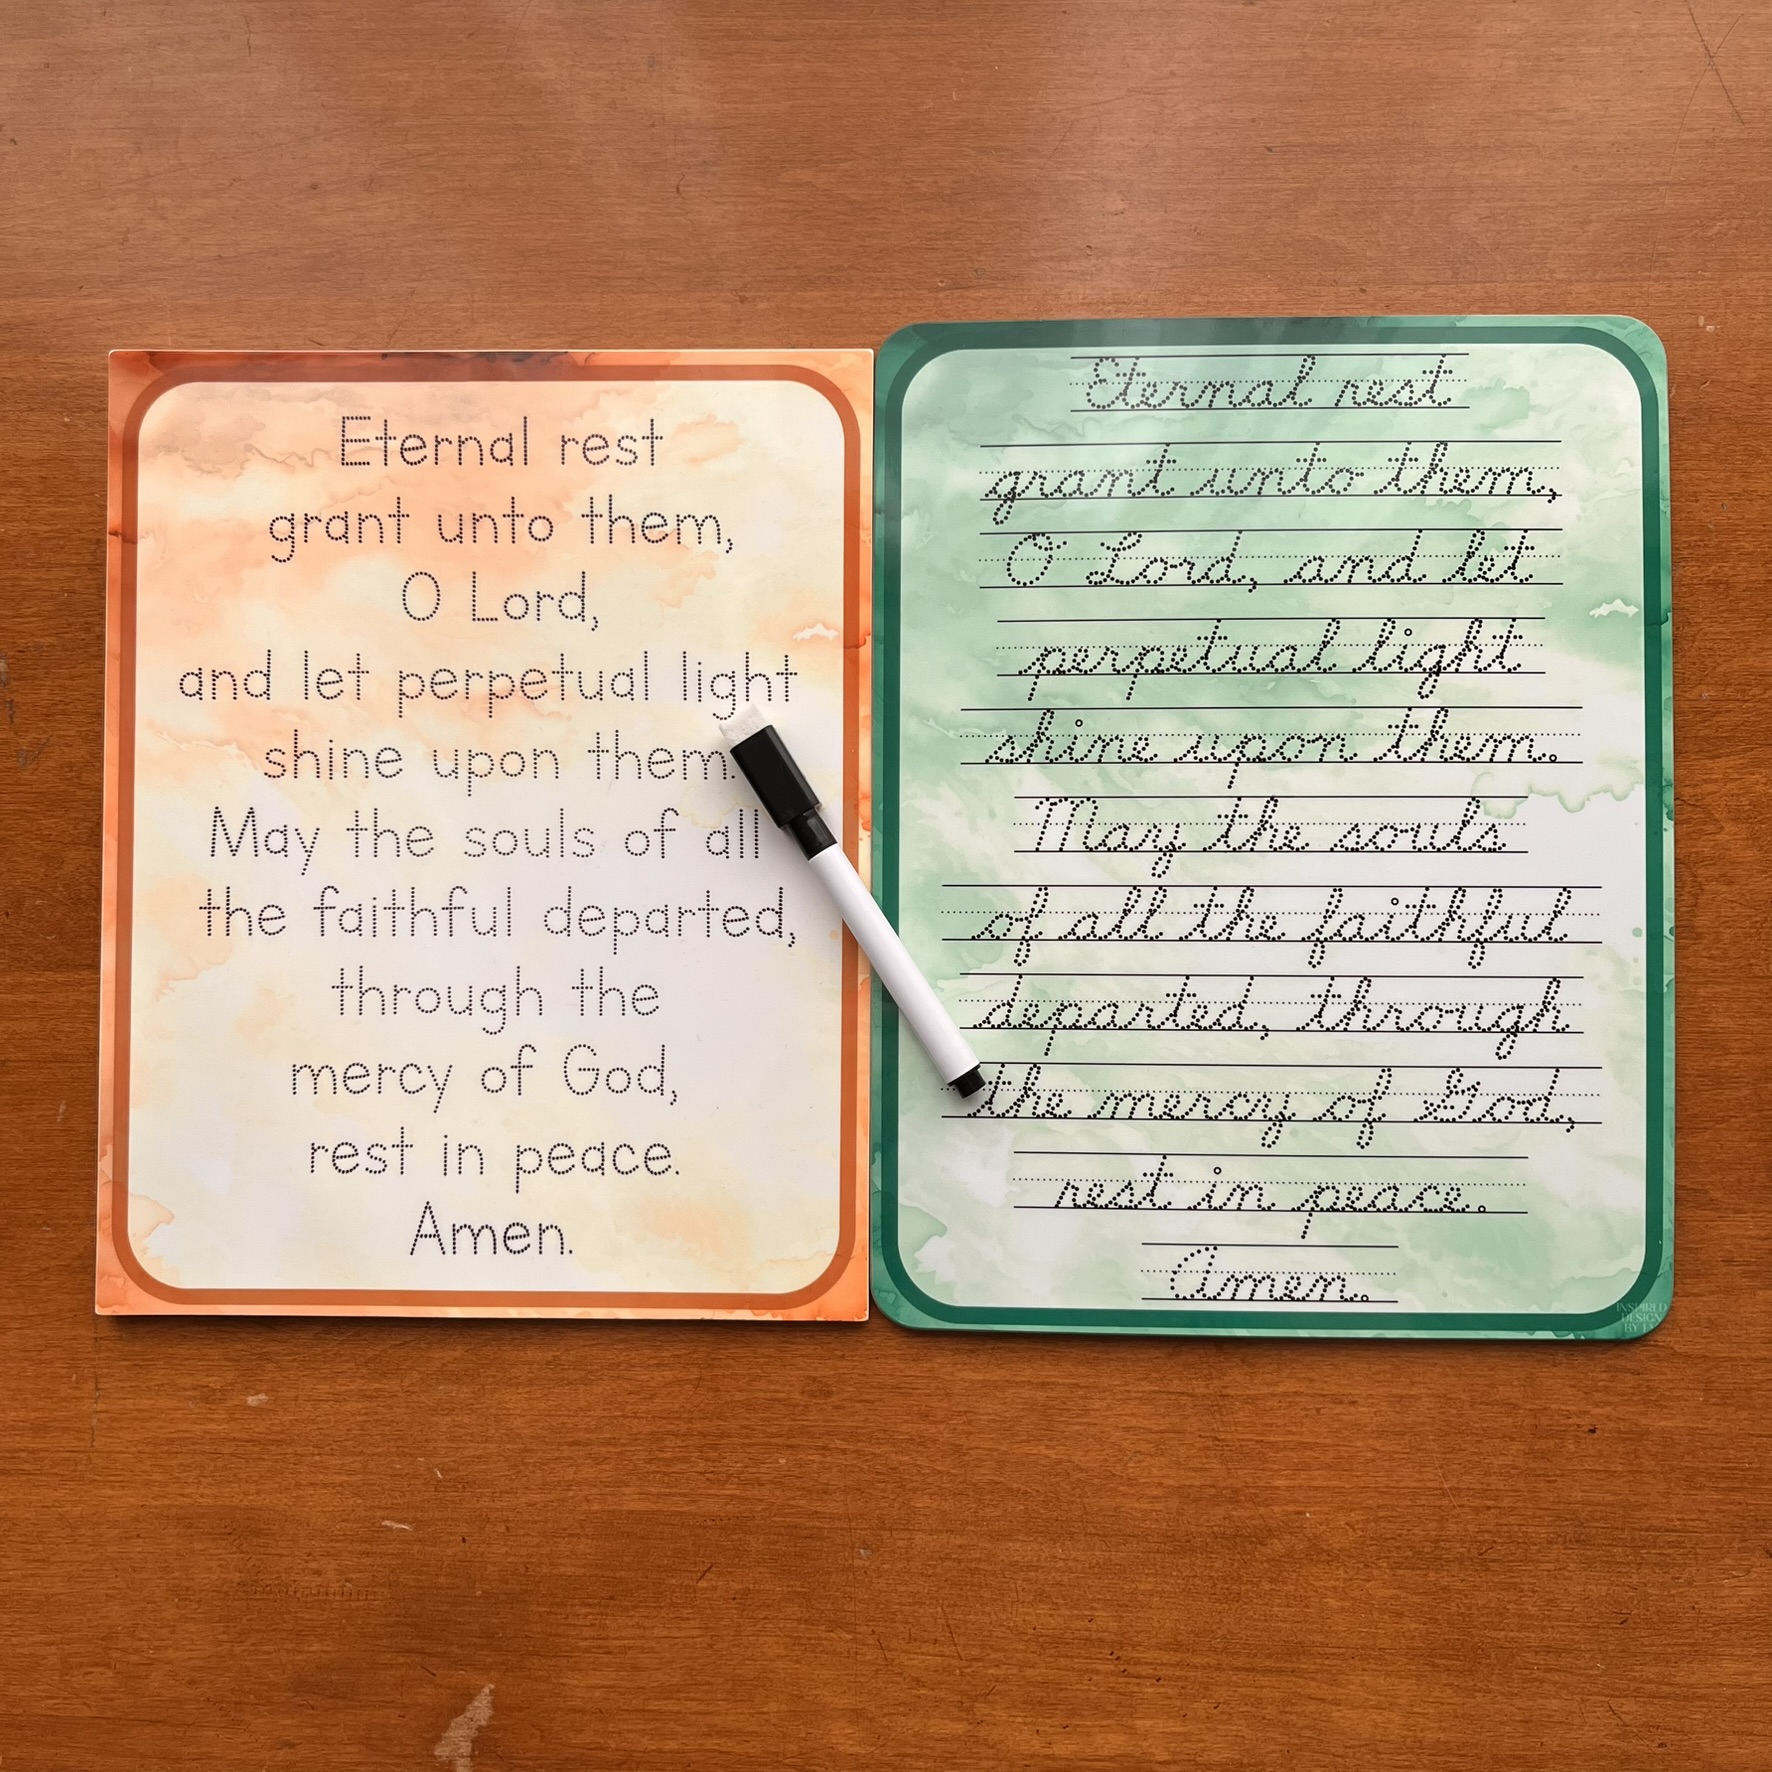 Eternal rest
grant unto them,
O Lord,
and let perpetual light
shine upon them.
May the souls of all
the faithful departed,
through the
mercy of God,
rest in peace.
Amen.
Eternal rest
grant unto them,
O Lord, and let
perpetual light
shine upon them.
May the souls
of all the faithful
departed, through
the mercy of God,
rest in peace.
Amen.
INSPIRED
DESIGN
BY